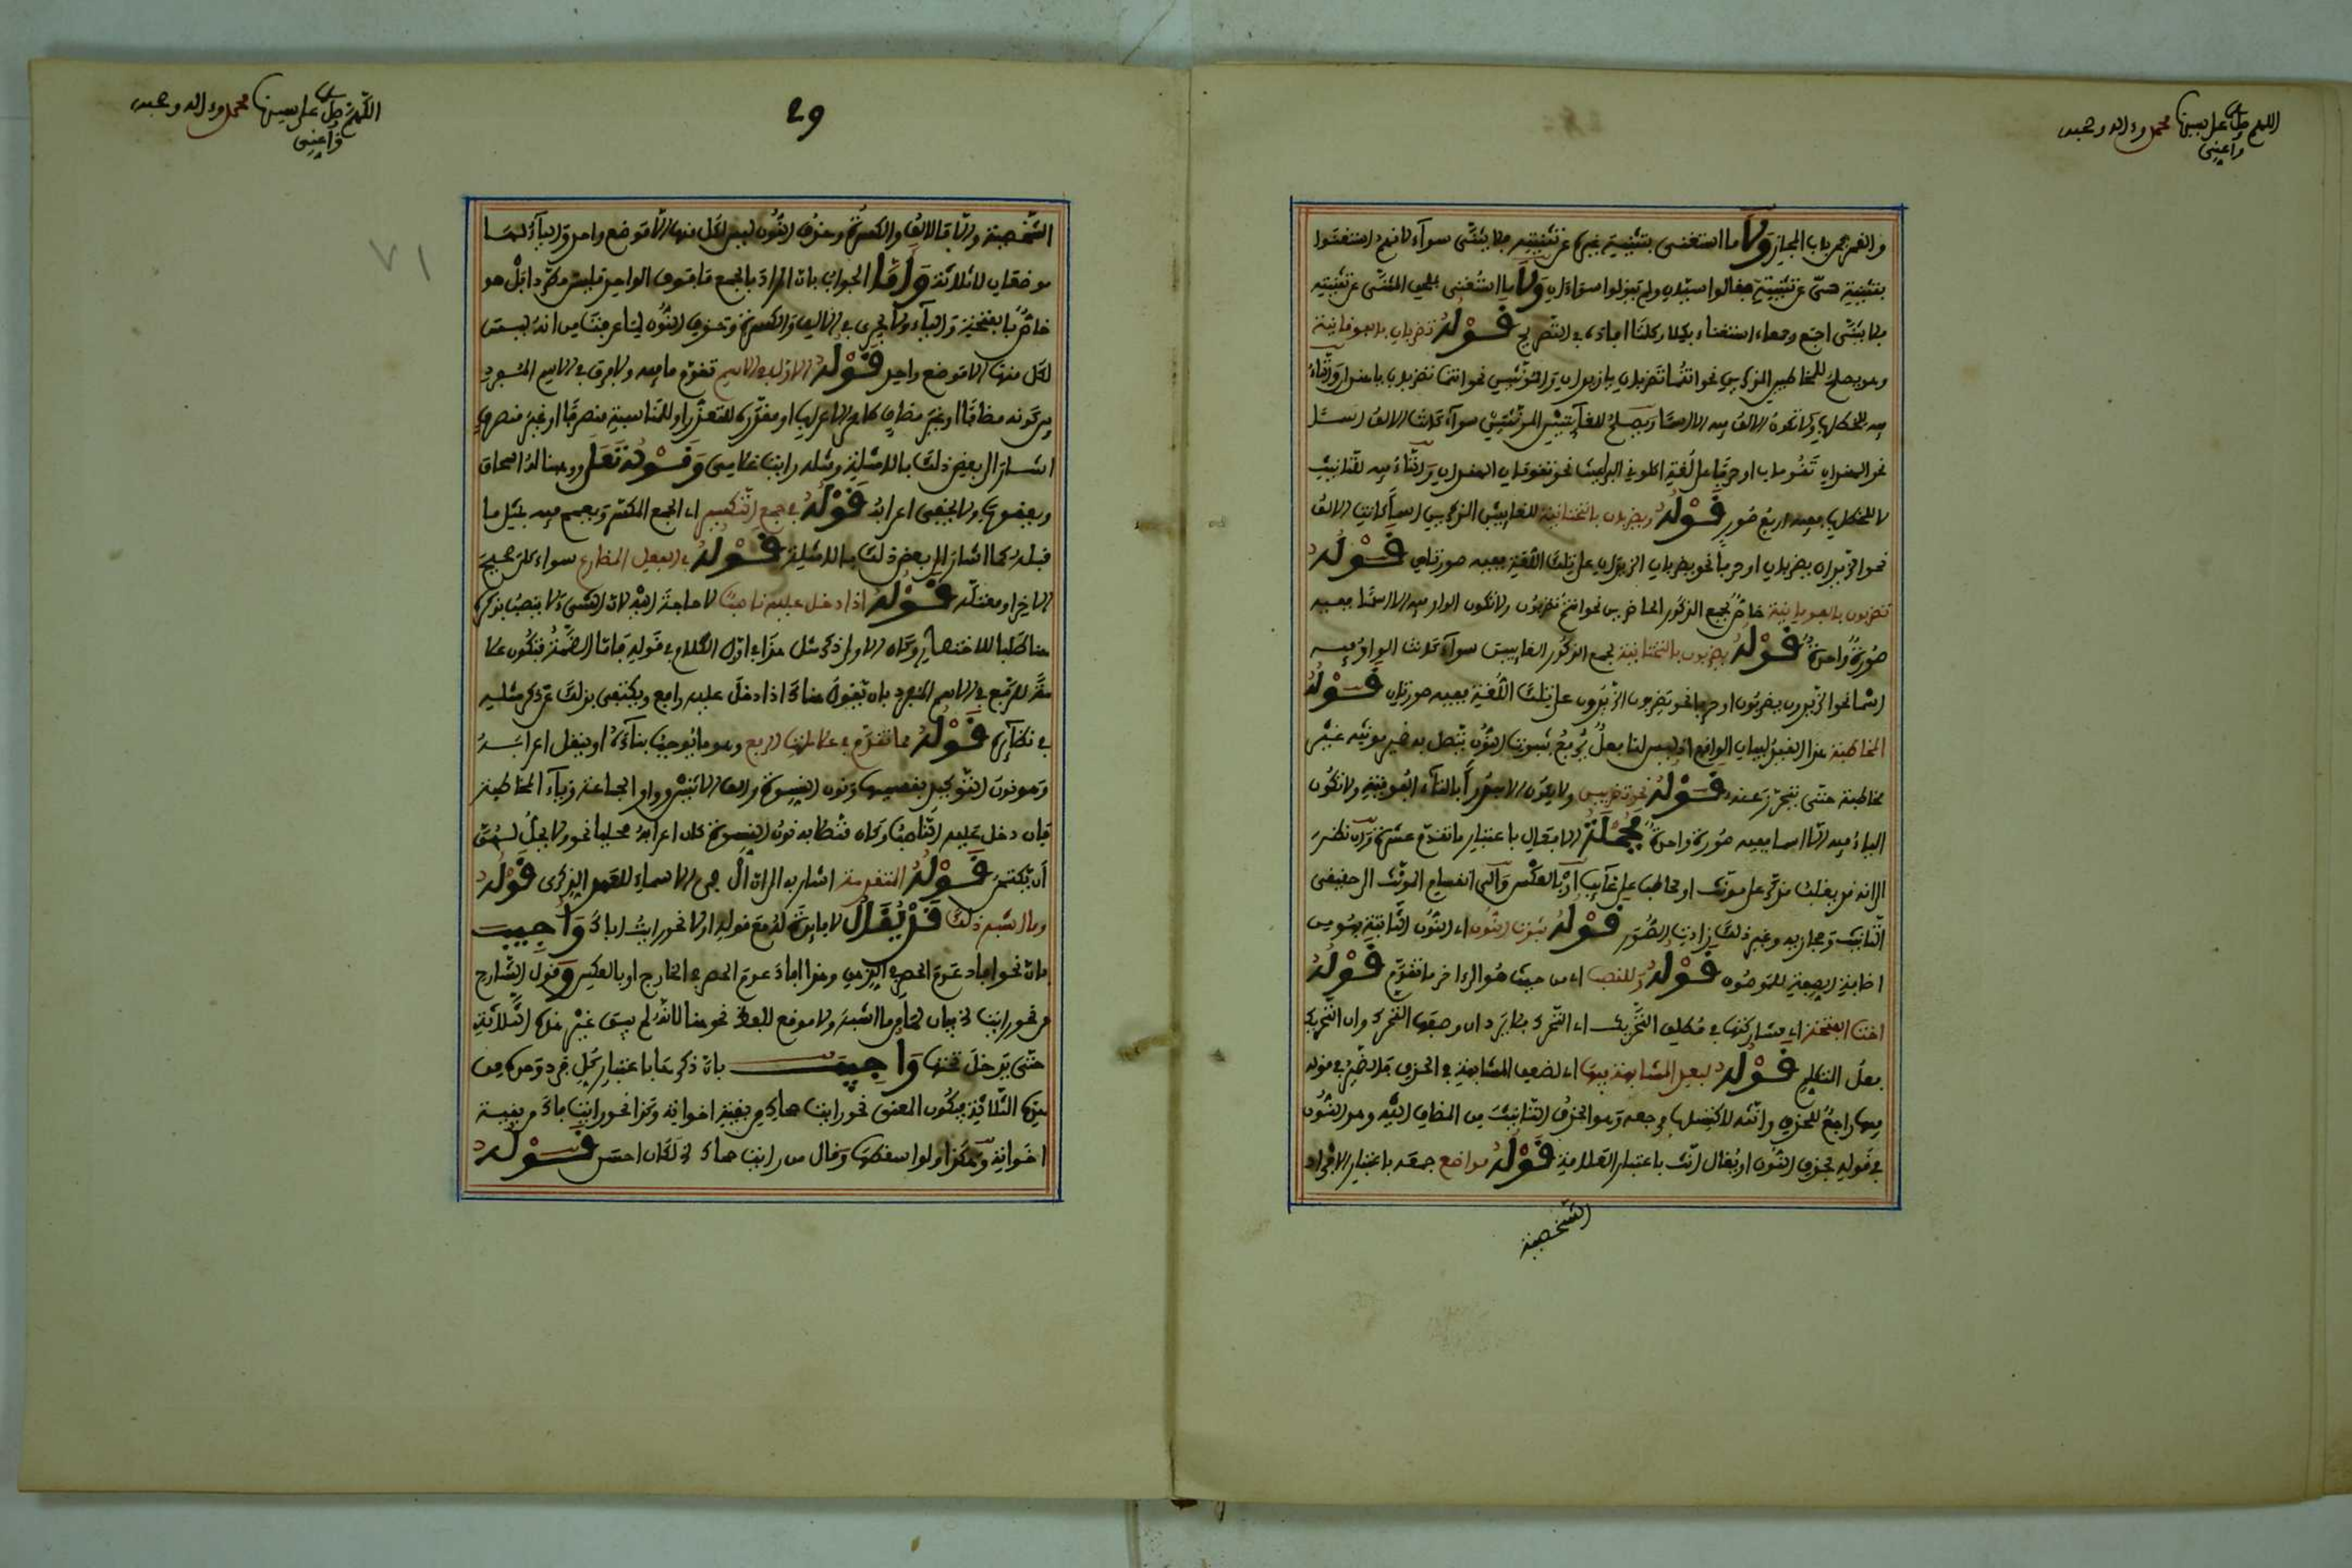 اللهم صل على سيدنا محمد وءاله وصحبه
وأعني
والقمر من باب المجاز ولا ما استغنى بتثنية غيره عن تثنيته فلا يثنى سواء لأنهم استغنوا
بتثنية سي عن تثنيته فقالوا سيان ولم يقولوا سواءان ولا ما استغنى بملحق المثنى عن تثنيته
فلا يثنى اجمع وجمعاء استغناء بكلا وكلتا افاده في التصريح قوله تضربان بالفوقانية
وهو يصلح للمخاطبين المذكرين نحو انتما تضربان يا زيدان والمؤنثين نحو انتما تضربان يا هندان والتاء
فيه للخطاب ولا تكون الالف فيه الا اسما ويصلح للغائبتين المؤنثتين سواء كانت الالف اسما
نحو الهندان تقومان او حرفا على لغة اكلوني البراغيث نحو تقومان الهندان والتاء فيه للتانيث
لا للخطاب ففيه اربع صور قوله ويضربان بالتحتانية للغائبين المذكرين اسما كانت الالف
نحو الزيدان يضربان او حرفا نحو يضربان الزيدان على تلك اللغة ففيه صورتان قوله
تضربون بالفوقانية خاص بجمع الذكور الحاضرين نحو انتم تضربون ولا تكون الواو فيه الا اسما ففيه
صورة واحدة قوله يضربون بالتحتانية لجمع الذكور الغائبين سواء كانت الواو فيه
اسما نحو الزيدون يضربون او حرفا نحو يضربون الزيدون على تلك اللغة ففيه صورتان قوله
المخاطبة هذا القيد لبيان الواقع اذ ليس لنا فعل يرفع بثبوت النون يتصل به ضمير مؤنثه غير
مخاطبة حتى يتحرز عنه قوله نحو تضربين ولا يكون الا مبدوا بالتاء الفوقية ولا تكون
الياء فيه الا اسما ففيه صورة واحدة فجملة الافعال باعتبار ما تقدم عشرة وان نظر
الى انه قد يغلب مذكر على مونث او مخاطب على غائب او بالعكس والى انقسام المونث الى حقيقي
التانيث ومجازيه وغير ذلك زادت الصور قوله ثبوت النون اي النون الثابتة فهو من
اضافة الصفة للموصوف قوله وللنصب اي من حيث هو الى اخر ما تقدم قوله
اخت الفتحة اي مشاركتها في مطلق التحريك اي التحرك فلا يرد ان وصفها التحرك وان التحريك
فعل المتكلم قوله لبعد المشابهة فيها اي لضعف المشابهة في الحذف فالضمير في قوله
فيها راجع للحذف وانثه لاكتسابه فرجعه وهو الحذف التانيث من المضاف اليه وهو النون
في قوله بحذف النون او يقال انث باعتبار العلامة قوله مواضع جمعه باعتبار الافراد
الشخصية
29
اللهم صل على سيدنا محمد وءاله وصحبه
وأعني
٧١
الشخصية والا فالالف والكسرة وحذف النون ليس لكل منها الا موضع واحد والياء لها
موضعان لا ثلاثة واما الجواب بان المراد بالجمع ما فوق الواحد فليس مطردا بل هو
خاص بالفتحة والياء ولا يجري في الالف والكسرة وحذف النون لما عرفت من انه ليس
لكل منها الا موضع واحد قوله الاول في الاسم تقدم ما فيه ولا فرق في الاسم المفرد
بين كونه مضافا او غير مضاف ظاهر الاعراب او مقدره للتعذر او للمناسبة منصرفا او غير منصرف
اشار الى بعض ذلك بالامثلة ومثله رايت غلامي وقوله تعالى ووهبنا له اسحاق
ويعقوب ولا يخفى اعرابه قوله في جمع التكسير اي الجمع المكسر ويعمم فيه بمثل ما
قبله كما اشار الى بعض ذلك بالامثلة قوله في الفعل المضارع سواء كان صحيح
الاخر او معتله قوله اذا دخل عليه ناصب لا حاجة اليه لان الشيء لا ينصب بذكره
هنا طلبا للاختصار وكان الاولى ذكر مثل هذا في اول الكلام في قوله فاما الضمة فتكون علا
مة للرفع في الاسم المفرد بان يقول هناك اذا دخل عليه رافع ويكتفي بذلك عن ذكر مثله
في نظائره قوله مما تقدم في علامات الرفع وهو ما يوجب بناءه او ينقل اعرابه
وهو نون التوكيد بقسميها ونون النسوة والف الاثنين وواو الجماعة وياء المخاطبة
فان دخل عليه الناصب وكان متصلا به نون النسوة كان اعرابه محليا نحو ولا يحل لهن
أن يكتمن قوله المتقدمة اشار به الى ان ال في الاسماء للعهد الذكري قوله
وما اشبه ذلك قد يقال لا فائدة له مع قوله اولا نحو رايت اباك واجيب
بان نحو افاد عدم الحصر في الذهن وهذا افاد عدم الحصر في الخارج او بالعكس وقول الشارح
من نحو رايت الخ بيان لما من ما اشبه ولا موقع للفظ نحو هنا لانه لم يبق غير هذه الثلاثة
حتى يدخل تحتها واجيب بان ذكر هنا باعتبار كل فرد وحده من
هذه الثلاثة فيكون المعنى نحو رايت حماك من بقية اخواته وكذا نحو رايت فاك من بقية
اخواته وهكذا ولو اسقطها وقال من رايت حماك الخ لكان احسن قوله